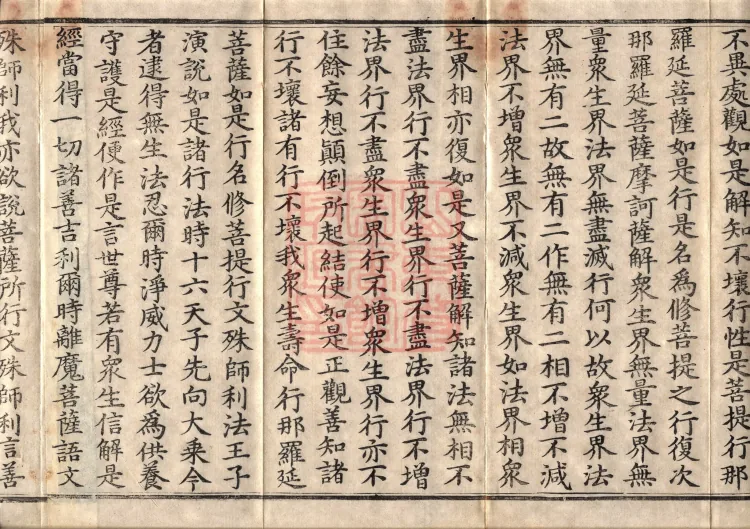 不異處觀如是解知不壞行性是菩提行那
羅延菩薩如是行是名爲修菩提之行復次
那羅延菩薩摩訶薩解衆生界無量法界無
量衆生界法界無盡滅行何以故衆生界法
界無有二故無有二作無有二相不增不減
法界不增衆生界不減衆生界如法界相衆
生界相亦復如是又菩薩解知諸法無相不
盡法界行不盡衆生界行不盡法界行不增
法界行不盡衆生界行不增衆生界行亦不
住餘妄想顛倒所起結使如是正觀善知諸
行不壞諸有行不壞我衆生壽命行那羅延
菩薩如是行名修菩提行文殊師利法王子
演說如是諸行法時十六天子先向大乘今
者逮得無生法忍爾時淨威力士欲爲供養
守護是經便作是言世尊若有衆生信解是
經當得一切諸善吉利爾時離魔菩薩語文
殊師利我亦欲說菩薩所行文殊師利言善